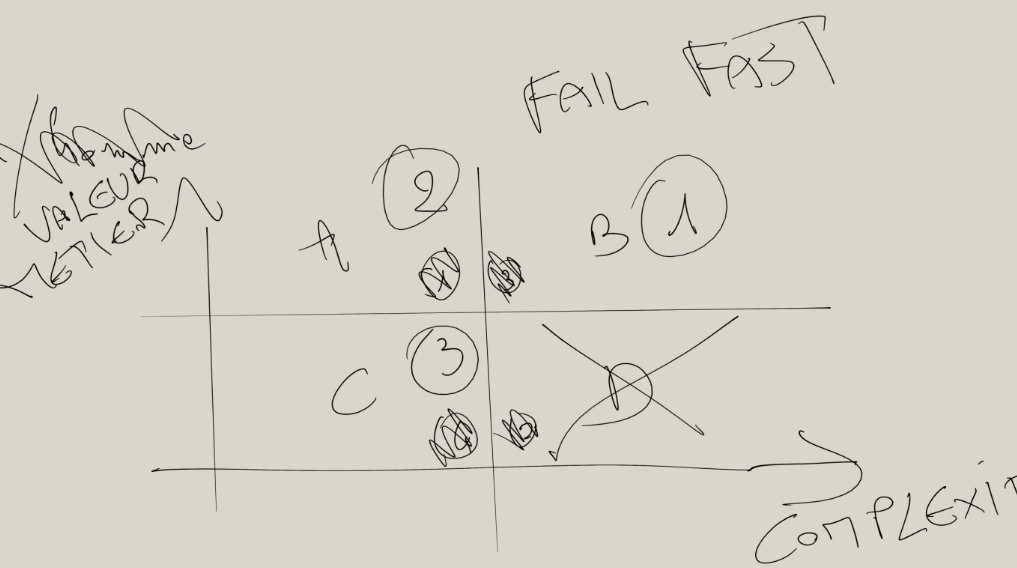 FAIL FAST
VALEUR
METIER
2
A
B 1
3
C
D
COMPLEXIT